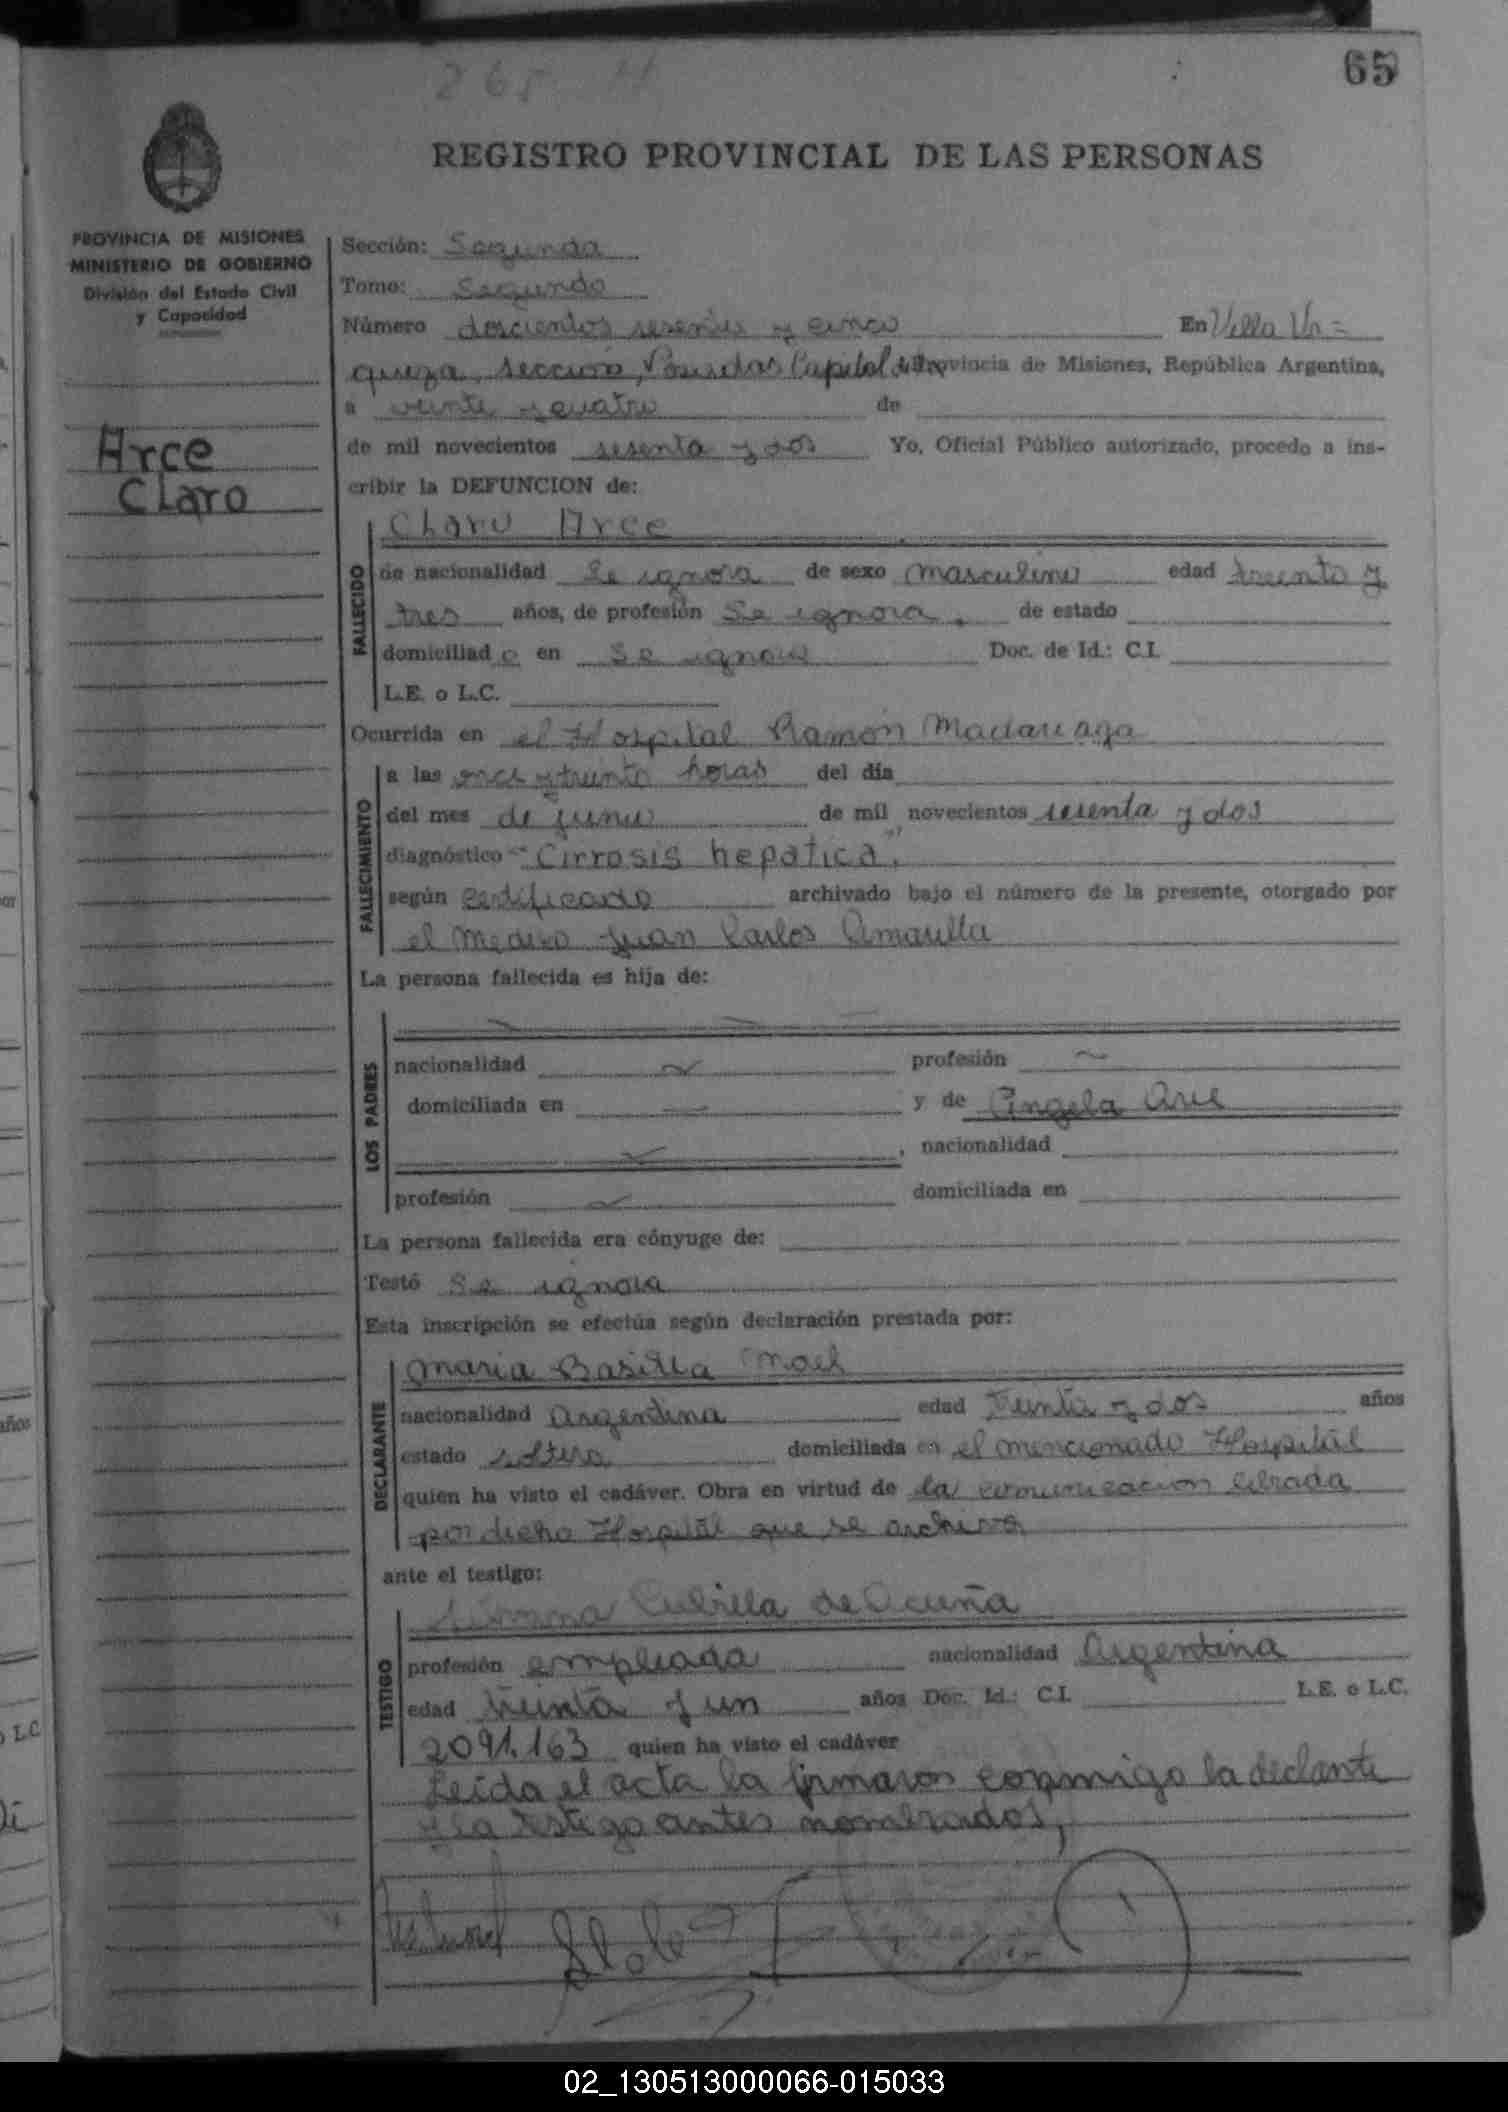 265
65
REGISTRO PROVINCIAL DE LAS PERSONAS
PROVINCIA DE MISIONES
MINISTERIO DE GOBIERNO
División del Estado Civil
y Capacidad
Arce
Claro
Sección: Segunda
Tomo: Segundo
Número doscientos sesenta y cinco En Villa Ur=
quiza, sección, Posadas Capital de la Provincia de Misiones, República Argentina,
a veinte y cuatro de
de mil novecientos sesenta y dos Yo, Oficial Público autorizado, procedo a ins-
cribir la DEFUNCION de:
Claro Arce
FALLECIDO
de nacionalidad Se ignora de sexo masculino edad treinta y
tres años, de profesión Se ignora. de estado
domiciliado en Se ignora Doc. de Id.: C.I.
L.E. o L.C.
Ocurrida en el Hospital Ramón Madariaga
FALLECIMIENTO
a las once y treinta horas del día
del mes de junio de mil novecientos sesenta y dos
diagnóstico "Cirrosis hepatica".
según certificado archivado bajo el número de la presente, otorgado por
el Medico Juan Carlos Amarilla
La persona fallecida es hija de:
LOS PADRES
nacionalidad profesión
domiciliada en y de Angela Arce
, nacionalidad
profesión domiciliada en
La persona fallecida era cónyuge de:
Testó Se ignora
Esta inscripción se efectúa según declaración prestada por:
DECLARANTE
Maria Basilia
nacionalidad Argentina edad treinta y dos años
estado soltera domiciliada en el mencionado Hospital
quien ha visto el cadáver. Obra en virtud de la comunicacion librada
por dicho Hospital que se archiva
ante el testigo:
TESTIGO
Cubilla de Acuña
profesión empleada nacionalidad Argentina
edad treinta y un años Doc. Id.: C.I. L.E. o L.C.
2091.163 quien ha visto el cadáver
Leida el acta la firmaron conmigo la declante
y la testigo antes nombrados,
02_130513000066-015033